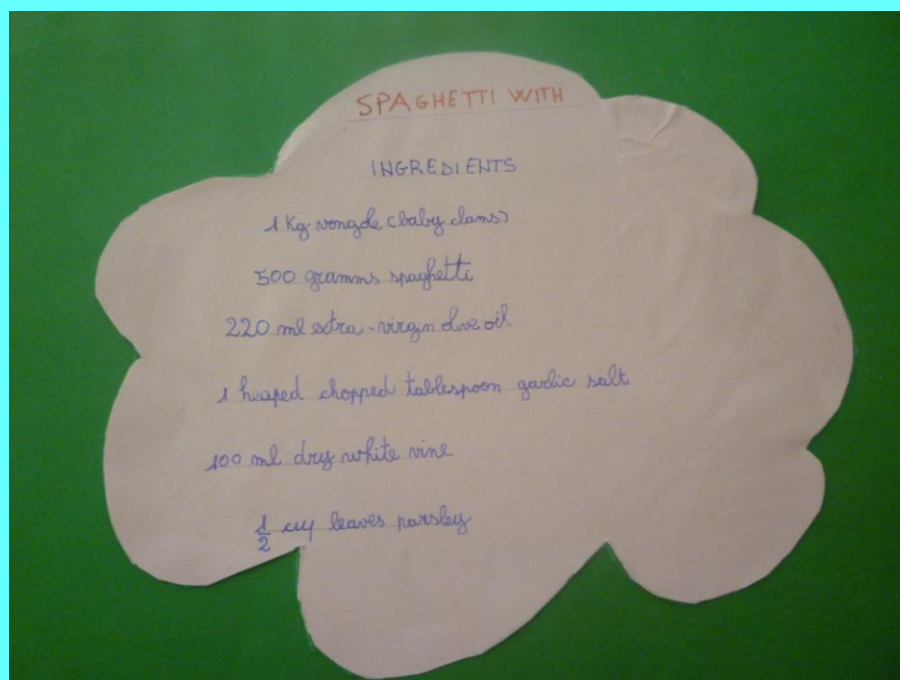 SPAGHETTI WITH
INGREDIENTS
1 Kg vongole (baby clams)
500 gramms spaghetti
220 ml extra-virgin olive oil
1 heaped chopped tablespoon garlic salt
100 ml dry white vine
1/2 cup leaves parsley